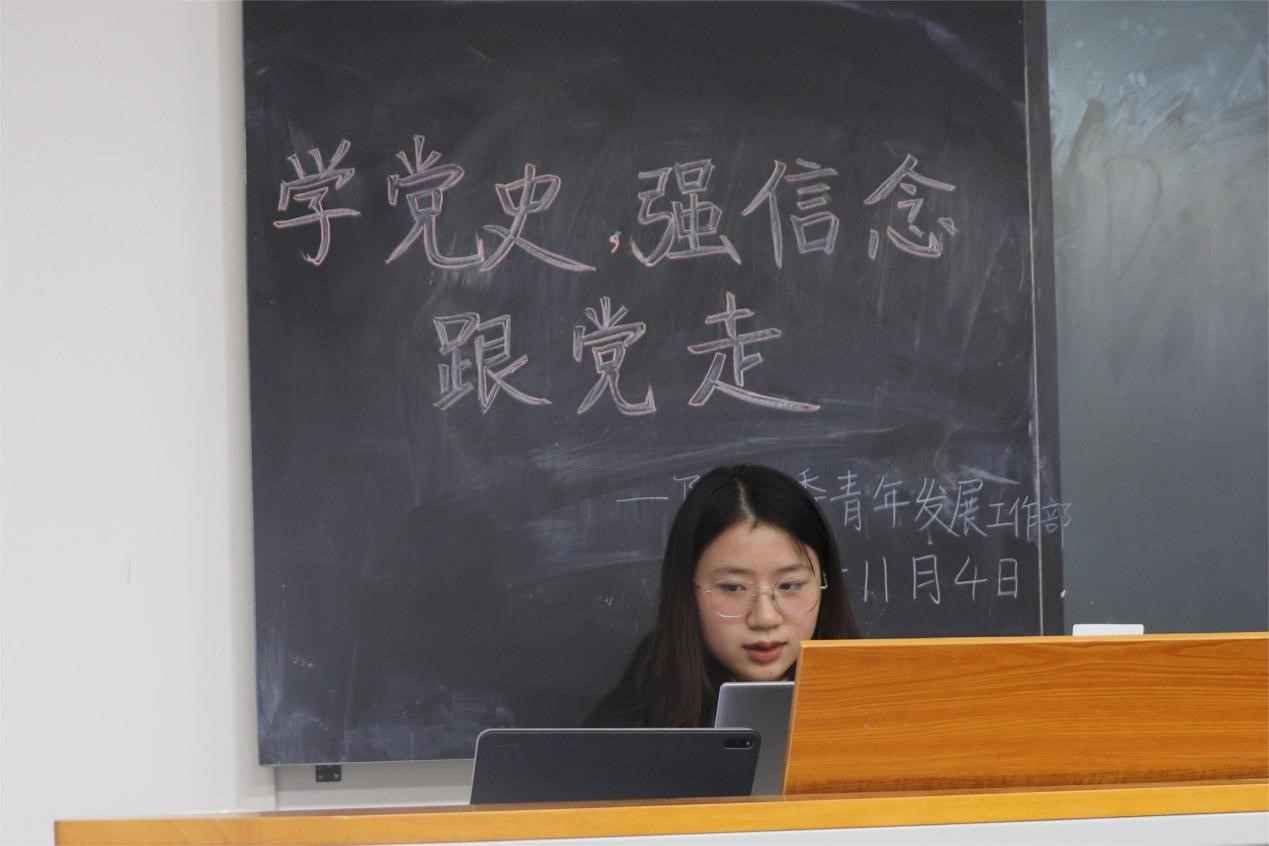 学党史,强信念
跟党走
青年发展工作部
11月4日